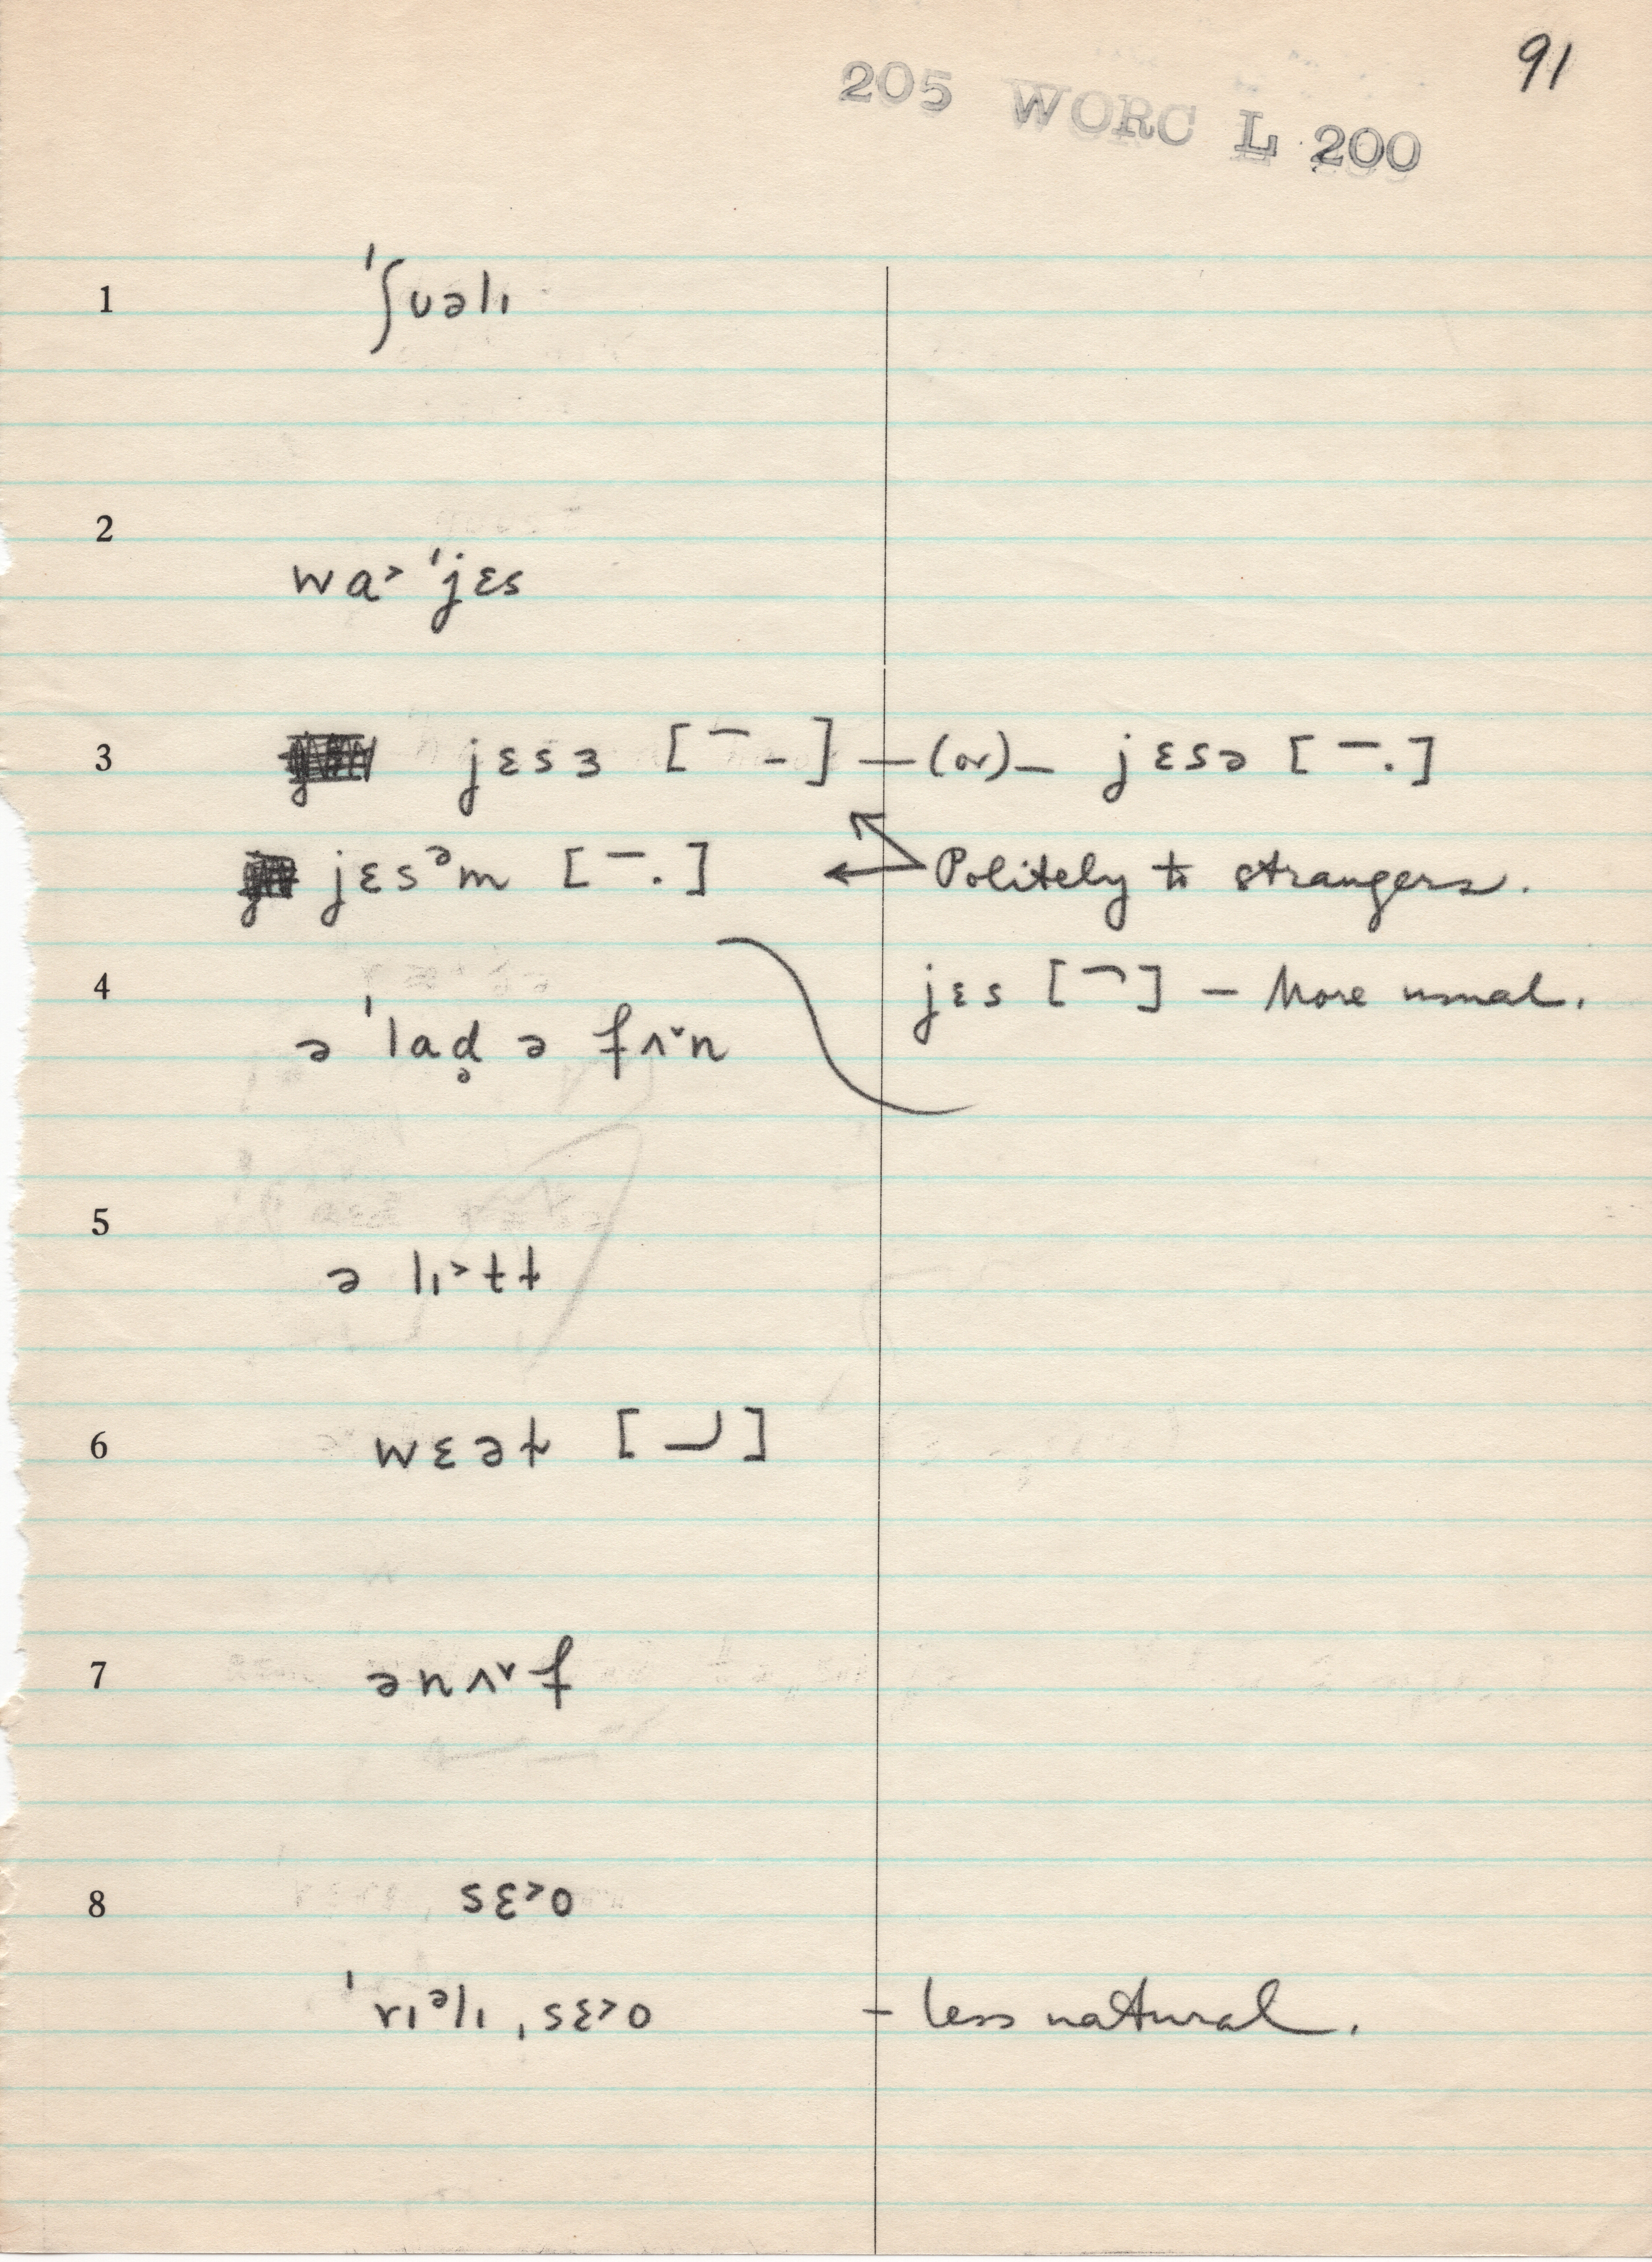 91
205 WORC L 200
1 ˈʃʊəlɪ
2 wa˃ ˈjɛs
3 jɛsɜ [¯ -] —(or)— jɛsə [¯.]
jɛsᵊm [¯.] Politely to strangers.
4 jɛs [¬] — More usual.
ə ˈlad̥ ə fʌ˅n
5 ə lɪ˃tt
6 wɛət [⏌]
7 ənʌ˅f
8 sɛ˃o
ˈrɪᵊlɪ ˌsɛ˃o – less natural.